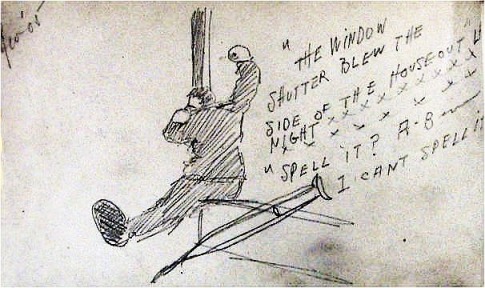 "THE WINDOW
SHUTTER BLEW THE
SIDE OF THE HOUSE OUT"
NIGHT x x x x x x x x x
"SPELL IT? A-B
I CANT SPELL IT